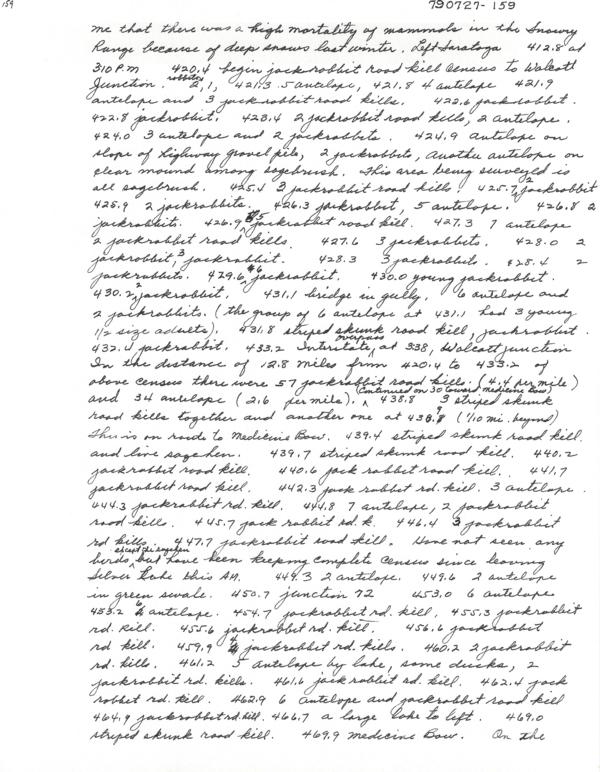 159
790727-159
me that there was a high mortality of mammals in the Snowy
Range because of deep snows last winter. Left Saratoga 412.8 at
310 P.M 420.4 begin jackrabbit road kill census to Walcott
Junction. rabbits 2, 1, 421.3 5 antelope, 421.8 4 antelope 421.9
antelope and 3 jackrabbit road kills. 422.6 jackrabbit.
422.8 jackrabbit. 423.4 2 jackrabbit road kills, 2 antelope.
424.0 3 antelope and 2 jackrabbits. 424.9 antelope on
slope of highway gravel pile, 2 jackrabbits, another antelope on
clear mound among sagebrush. This area being surveyed is
all sagebrush. 425.4 3 jackrabbit road kills. 425.7 2 jackrabbit
425.9 2 jackrabbits. 426.3 jackrabbit, 5 antelope. 426.8 2
jackrabbits. 426.9 5 jackrabbit road kill. 427.3 7 antelope
2 jackrabbit road kills. 427.6 3 jackrabbits. 428.0 2
jackrabbit, 3 jackrabbit. 428.3 3 jackrabbits. 428.4 2
jackrabbits. 429.6 6 jackrabbit. 430.0 young jackrabbit.
430.2 2 jackrabbit. 431.1 bridge in gully, 6 antelope and
2 jackrabbits. (the group of 6 antelope at 431.1 had 3 young
1/2 size adults). 431.8 striped skunk road kill, jackrabbit.
432.4 jackrabbit. 433.2 Interstate overpass at 338, Walcott junction
In the distance of 12.8 miles from 420.4 to 433.2 of
above census there were 57 jackrabbit road kills. (4.4 per mile)
and 34 antelope (2.6 per mile). (Continued on 30 toward medicine Bow) 438.8 3 striped skunk
road kills together and another one at 438.9 (1/10 mi. beyond)
This is on route to Medicine Bow. 439.4 striped skunk road kill
and live sagehen. 439.7 striped skunk road kill. 440.2
jackrabbit road kill. 440.6 jack rabbit road kill. 441.7
jackrabbit road kill. 442.3 jack rabbit rd. kill. 3 antelope.
444.3 jackrabbit rd. kill. 444.8 7 antelope, 2 jackrabbit
road kills. 445.7 jack rabbit rd. k. 446.4 3 jackrabbit
rd kills. 447.7 jackrabbit road kill. Have not seen any
birds except the sagehen but have been keeping complete census since leaving
Silver Lake this AM. 449.3 2 antelope. 449.6 2 antelope
in green swale. 450.7 junction 72 453.0 6 antelope
453.2 6 antelope. 454.7 jackrabbit rd. kill, 455.3 jackrabbit
rd. kill. 455.6 jackrabbit rd. kill. 456.6 jackrabbit
rd kill. 459.9 4 jackrabbit rd. kills. 460.2 2 jackrabbit
rd. kills. 461.2 5 antelope by lake, some ducks, 2
jackrabbit rd. kills. 461.6 jack rabbit rd. kill. 462.4 jack
rabbit rd. kill. 462.9 6 antelope and jackrabbit road kill
464.9 jackrabbit rd. kill. 466.7 a large lake to left. 469.0
striped skunk road kill. 469.9 medicine Bow. On the